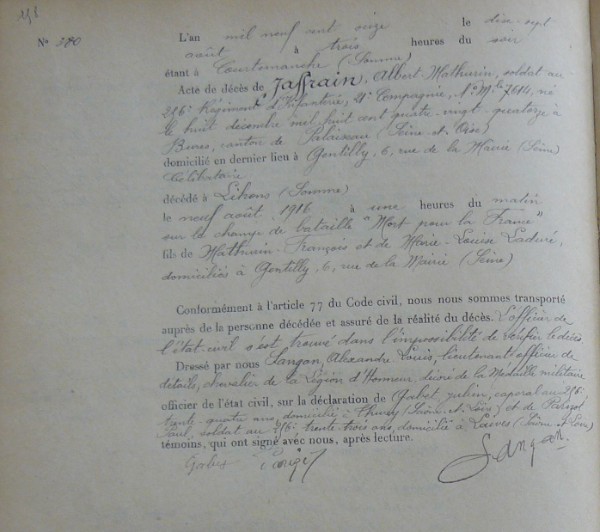 N° 380
L'an mil neuf cent seize le dix-sept
août à trois heures du soir
étant à Courtemanche (Somme)
Acte de décès de Jaffrain, Albert Mathurin, soldat au
Régiment d'Infanterie, 21e Compagnie, N° Mle 7614, né
le huit décembre mil huit cent quatre vingt quatorze à
Bures, canton de Palaiseau (Seine-et-Oise)
domicilié en dernier lieu à Gentilly, 6, rue de la Mairie (Seine)
Célibataire
décédé à Lihons (Somme)
le neuf août 1916 à une heures du matin
sur le champ de bataille "Mort pour la France"
fils de Mathurin François et de Marie Louise Laduré,
domiciliés à Gentilly, 6, rue de la Mairie (Seine)
Conformément à l'article 77 du Code civil, nous nous sommes transporté
auprès de la personne décédée et assuré de la réalité du décès. L'officier de
l'état-civil s'est trouvé dans l'impossibilité de vérifier le décès
Dressé par nous Sangan, Alexandre Louis, lieutenant officier de
détails, chevalier de la Légion d'Honneur, décoré de la Médaille militaire
officier de l'état civil, sur la déclaration de Gabet, Julien, caporal au
trente-quatre ans, domicilié à (Saône-et-Loire) et de Parizot
Paul, soldat au trente-trois ans, domicilié à (Saône-et-Loire)
témoins, qui ont signé avec nous, après lecture.
Gabet Parizot Sangan